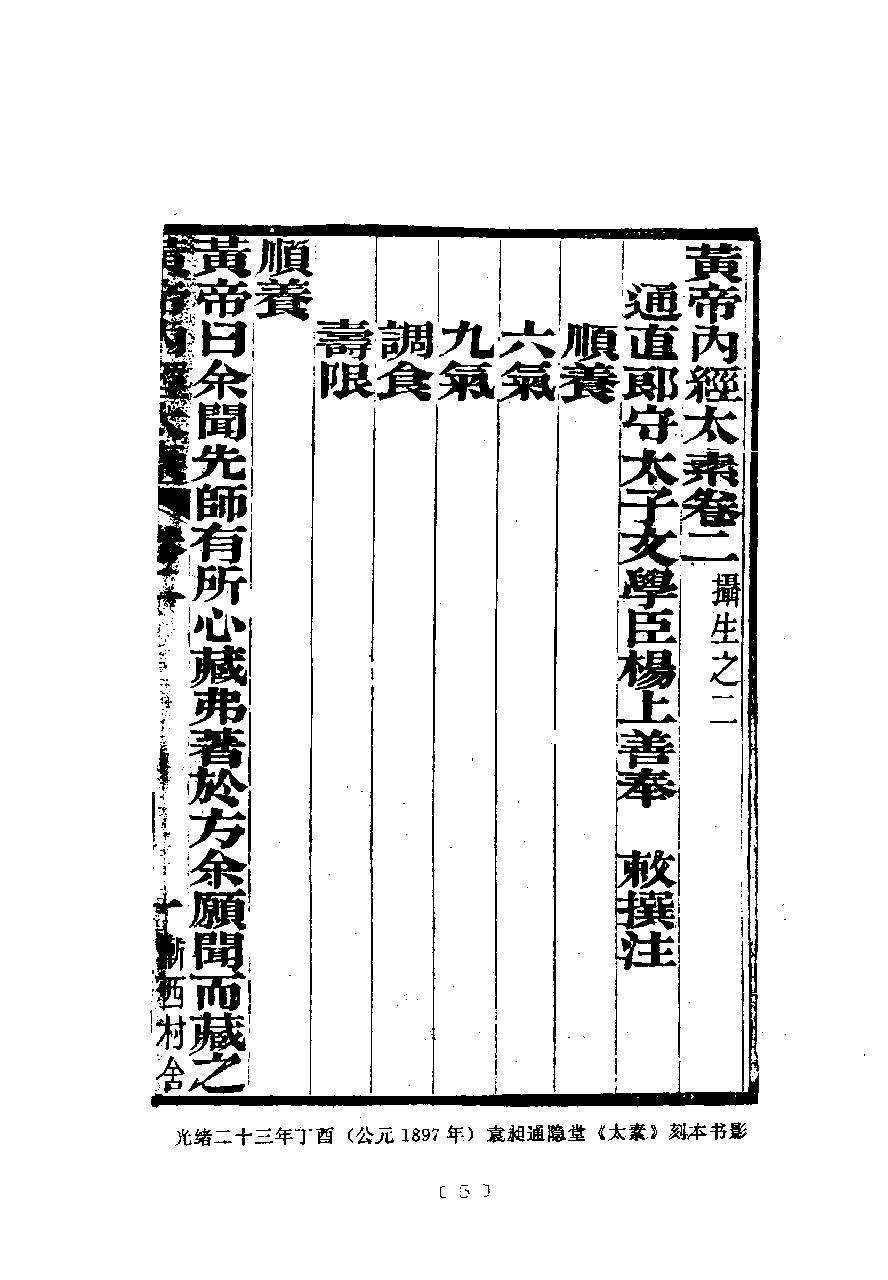 黃帝內經太素卷二 攝生之二
通直郎守太子文學臣楊上善奉 敕撰注
順養
六氣
九氣
調食
壽限
順養
黃帝曰余聞先師有所心藏弗著於方余願聞而藏之
黃帝內經太素 卷二 一 漸西村舍
光绪二十三年丁酉（公元 1897 年）袁昶通隐堂《太素》刻本书影
〔 5 〕